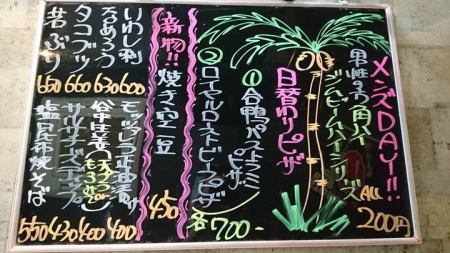 メンズDAY!!
男性のみ角ハイ
ジムビームハイシリーズ
ALL
200円
日替わりピザ
①合鴨パストラミピザ
②ローストビーフピザ
各700-
新物!!
焼き空豆
450
いわし刺
600
るあろう
630
タコブツ
660
昔ぶり
650
モッツァレラ正油漬け
400
谷中生姜
400
サルサチーズディップ
430
塩昆布焼そば
550